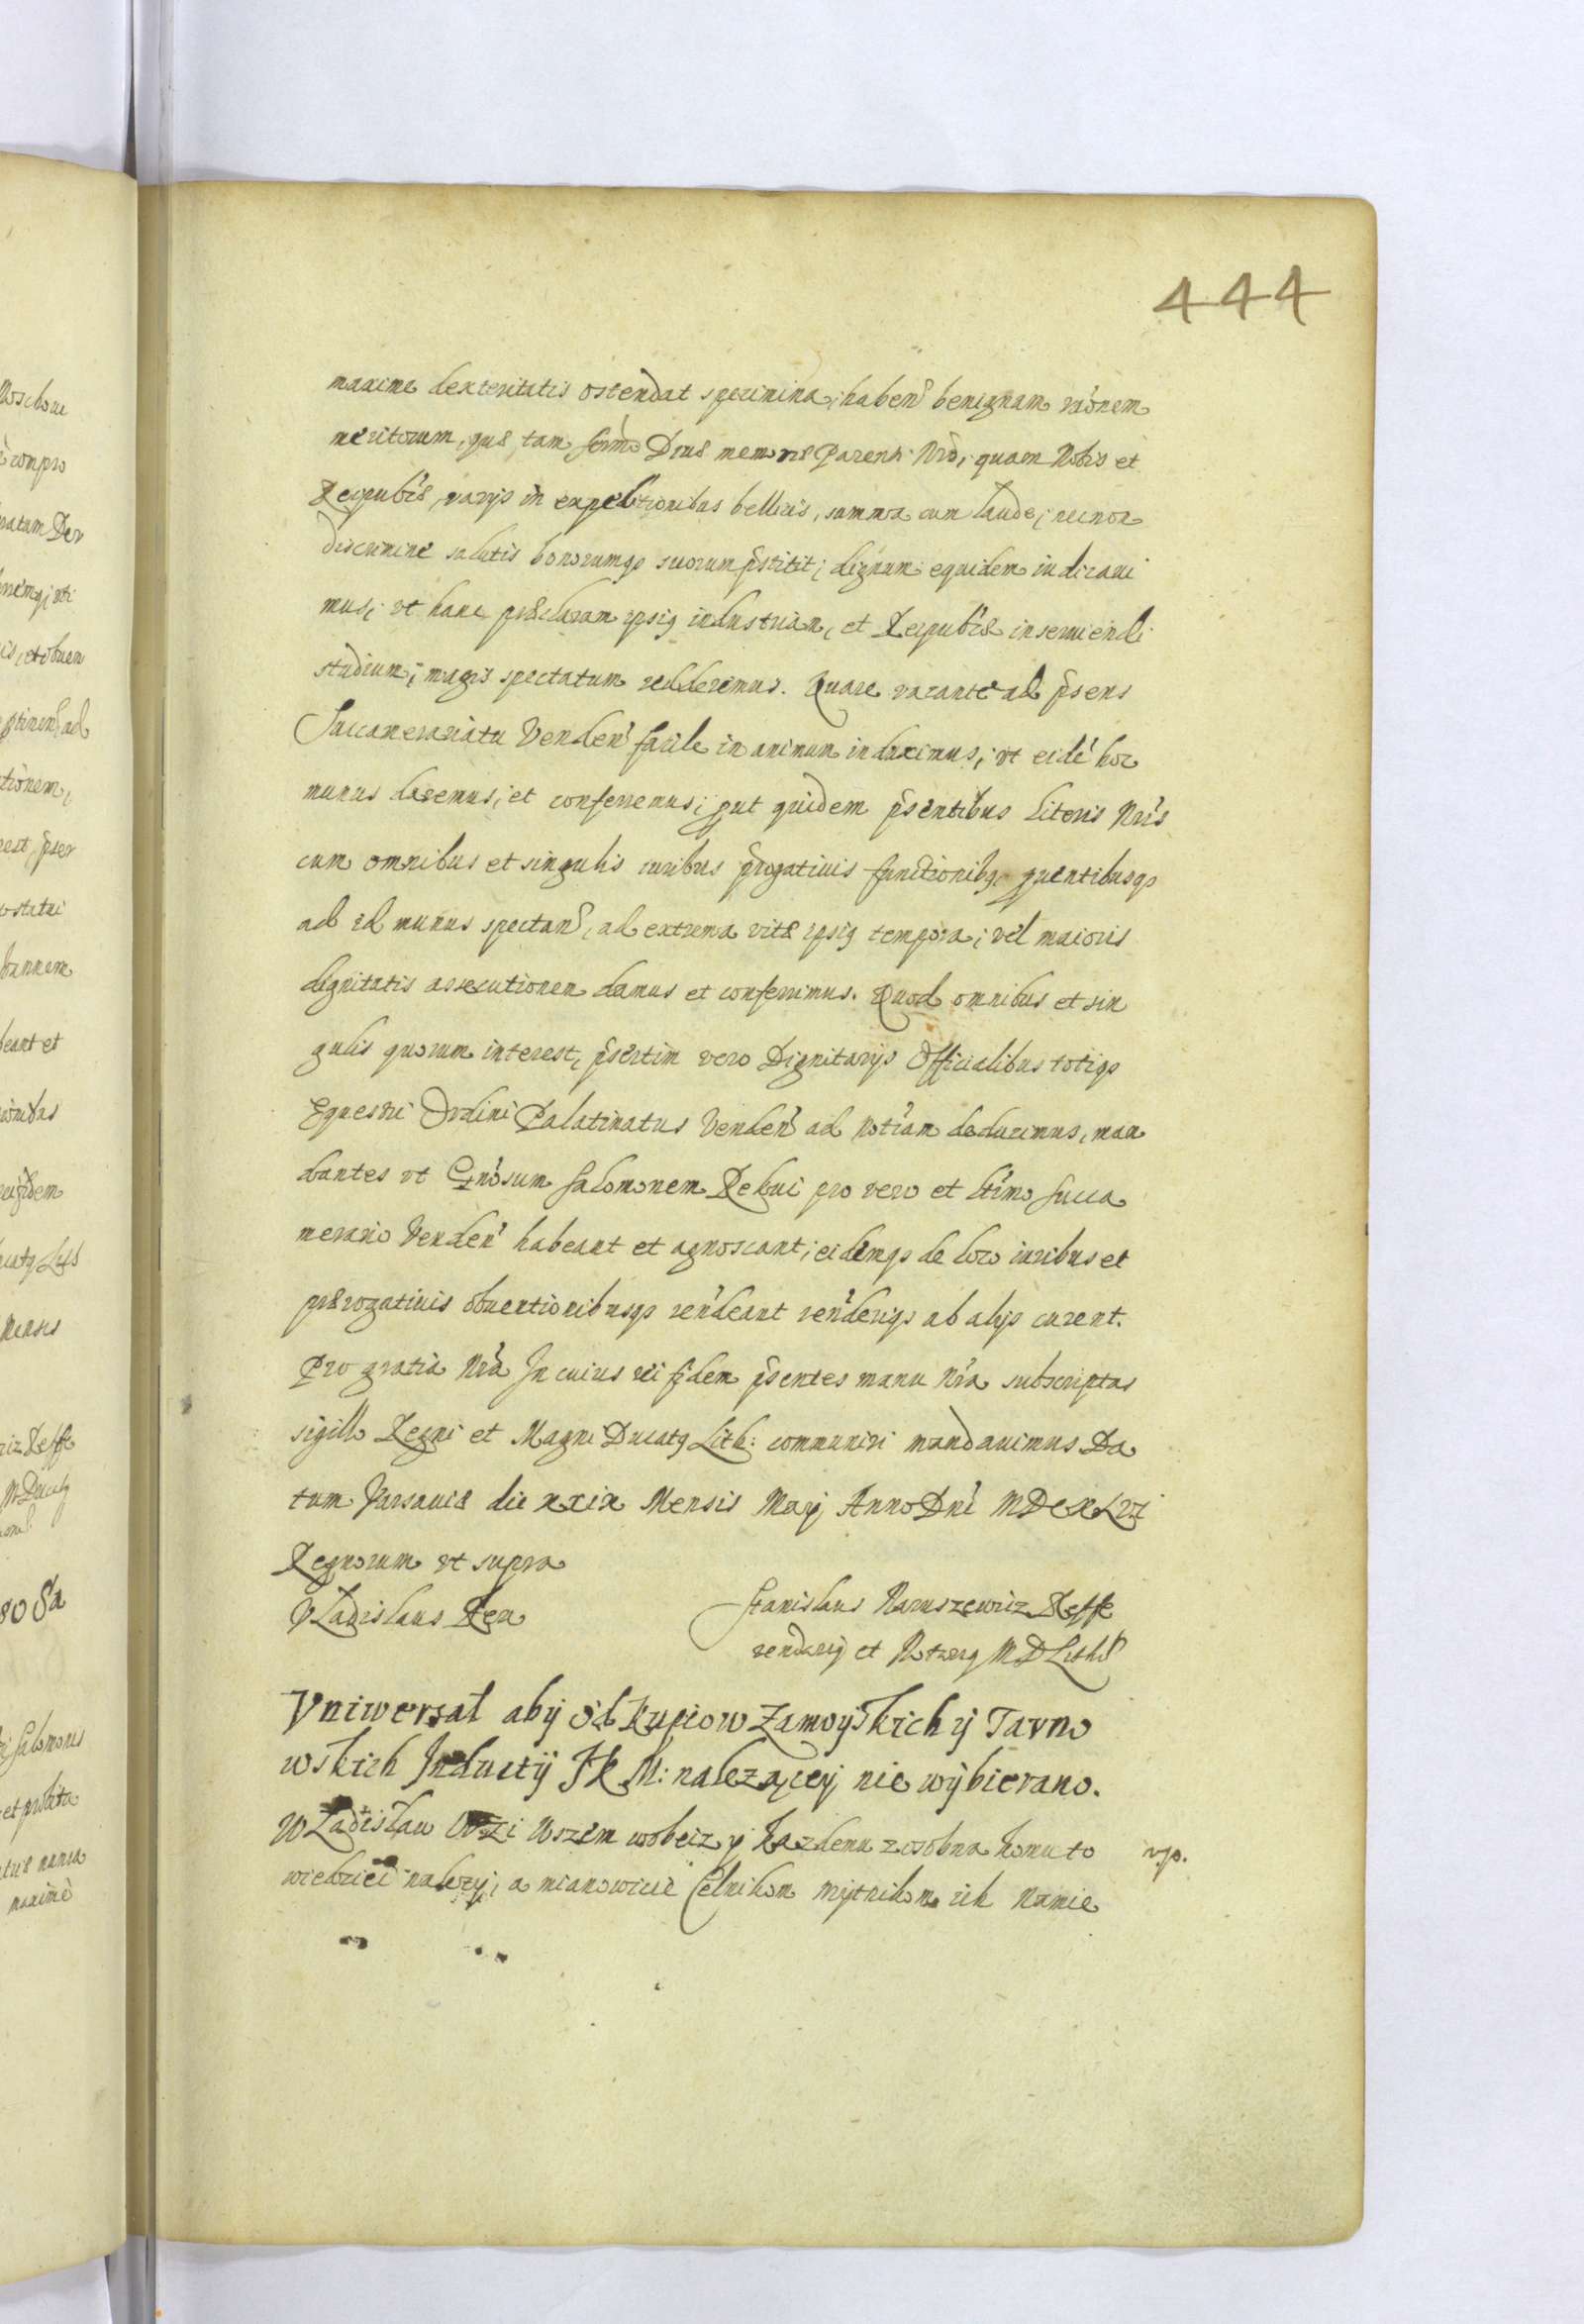 444
maxime dexteritatis ostendat specimina, haben̄ benignam rãonem
meritorum, quæ tam Serīmo Diuæ memoriæ Parenti Nrõ, quam Nobis et
Reipublicæ, varijs in expeditionibus bellicis, summa cum laude, necnon
discrimine salutis bonorumq3 suorum p̃stitit; dignum equidem iudicaui
mus, vt hanc præclaram ipsig industriam, et Reipubcæ inseruiendi
studium, magis spectatum redderemus. Quare vacante ad p̃sens
Succamerariatu Venden̄ facile in animum induximus, vt eidẽ hoc
munus daremus, et conferremus, put quidem p̃sentibus Literis Nrĩs
cum omnibus et singulis iuribus p̃rogatiuis functionibg, puentibusq3
ad id munus spectan̄, ad extrema vitæ ipsig tempora, vel maioris
dignitatis assecutionem damus et conferimus. Quod omnibus et sin
gulis quorum interest, p̃sertim vero Dignitarijs Officialibus totiq3
Equestri Ordini Palatinatus Venden̄ ad notĩam deducimus, man
dantes vt Gnõsum Salomonem Rekui pro vero et ltĩmo Succa
merario Venden̄ habeant et agnoscant, eidemq3 de loco iuribus et
prærogatiuis obuentionibusq3 rendeant renderiq3 ab alijs curent.
Pro gratia Nrã In cuius rei fidem p̃sentes manu Nrã subscriptas
sigillo Regni et Magni Ducatg Lith: communiri mandauimus Da
tum Varsauiæ die xxix Mensis Maij Anno Dnĩ MDCXLVI
Regnorum vt supra
Vladislaus Rex
Stanislaus Naruszewicz Reffe
rendarig et Notarig MD Lith
Vniwersał abÿ od kupcow Zamoyskich ÿ Tarno
wskich Inductÿ JK M: nalezącey nie wÿbierano.
Władisław IV Wszem wobecz y kazdemu zosobna komu to
wiedziec nalezy, a mianowicie Celnikom mytnikom ich Namie